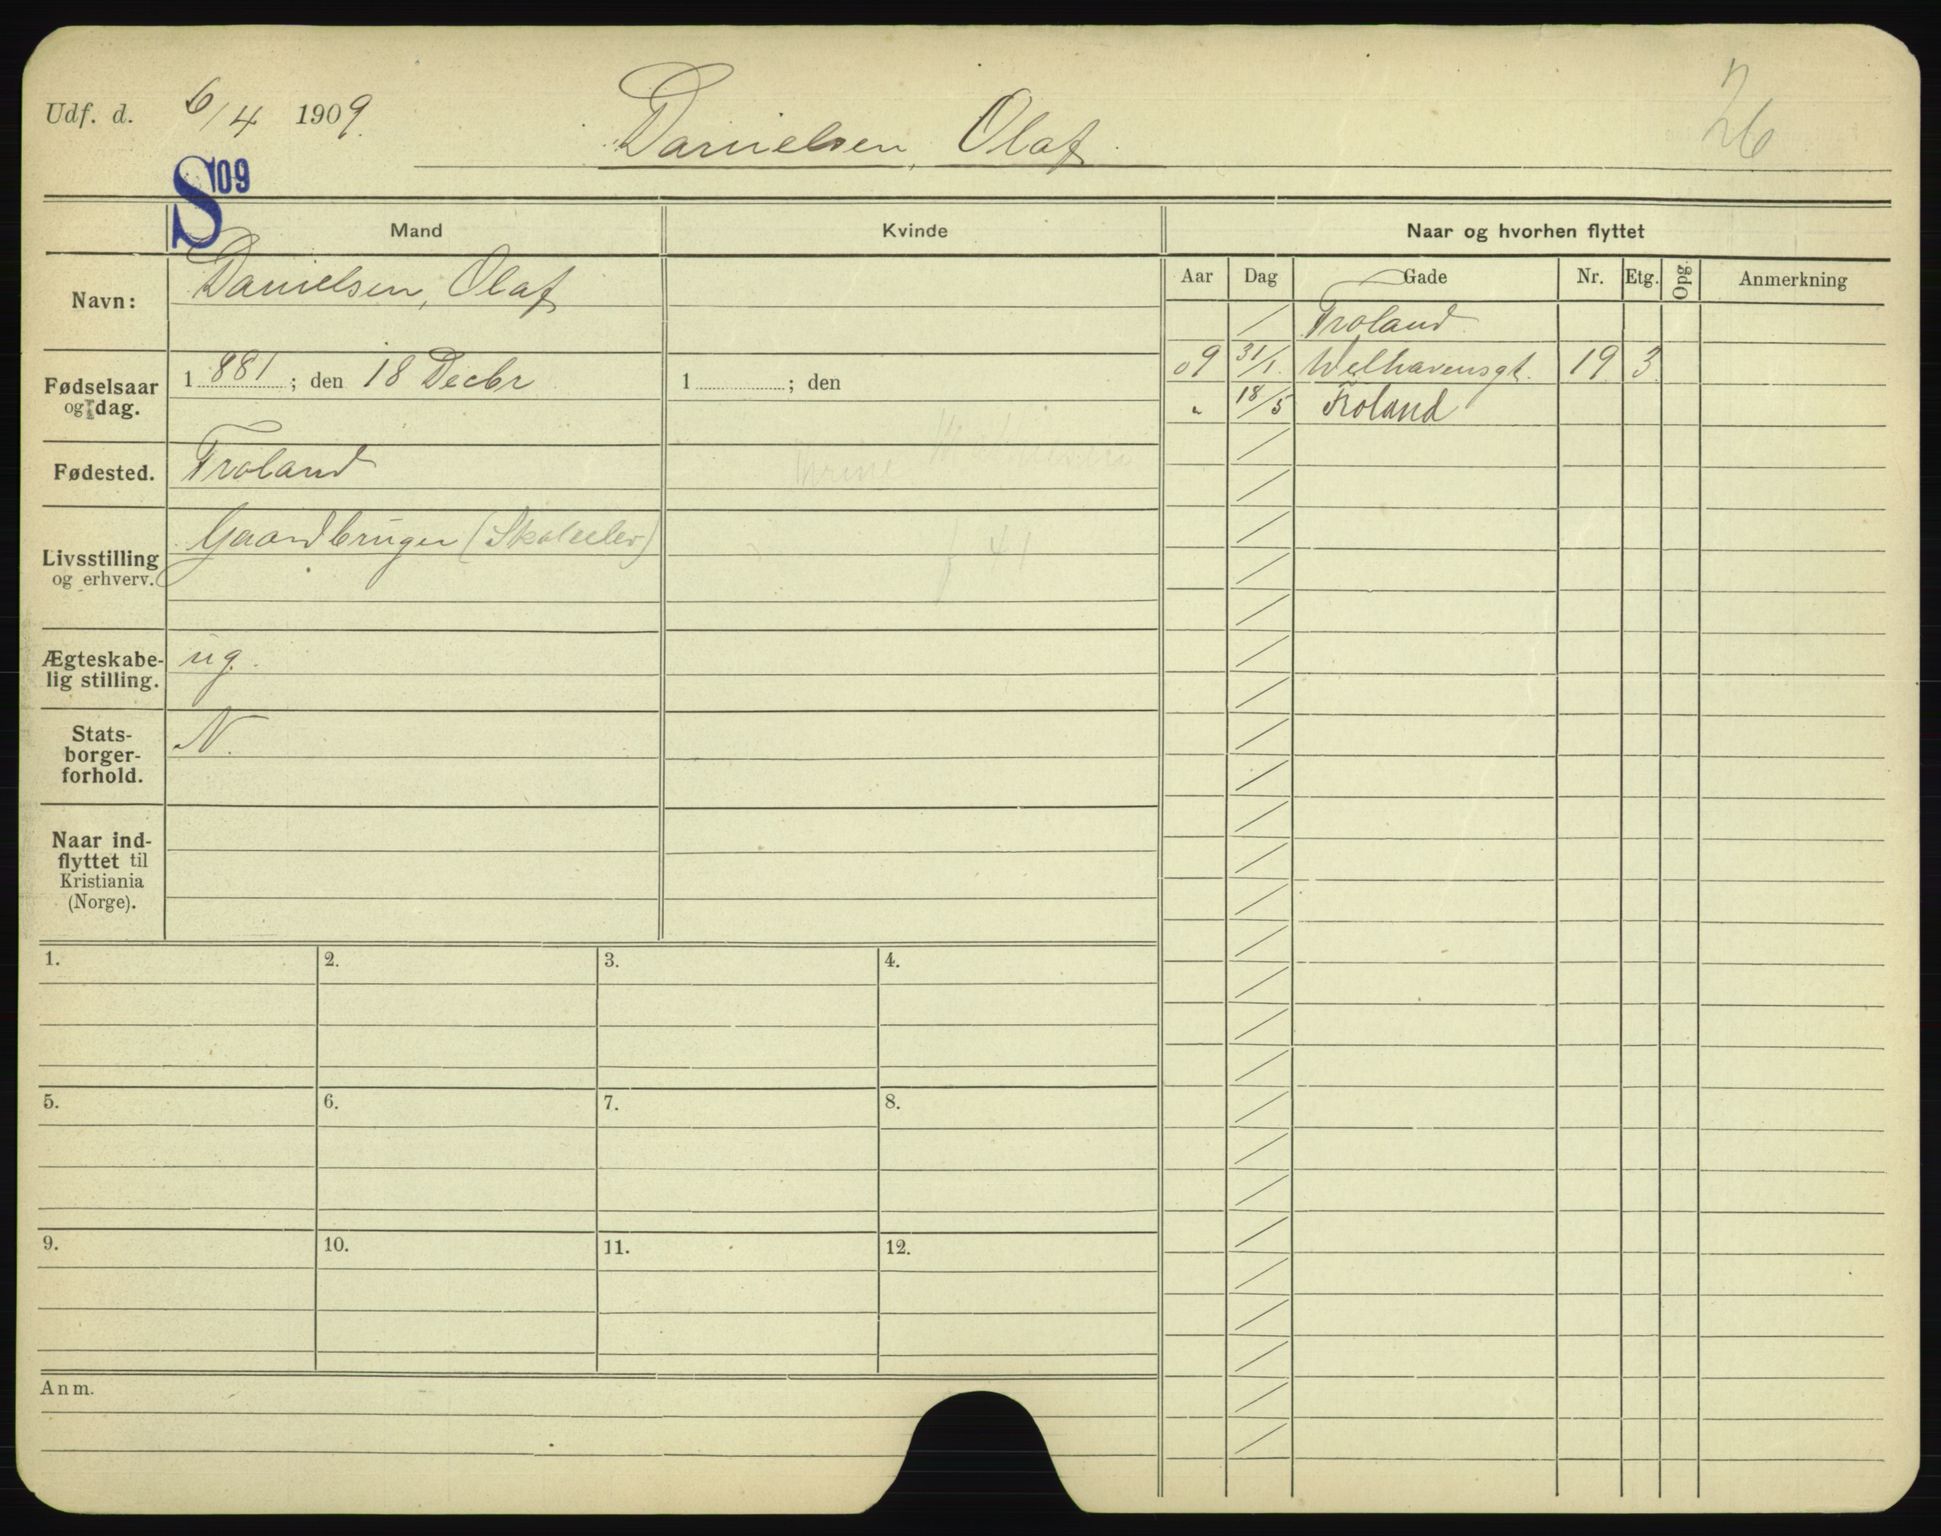 Udf. d. 6/4 1909.
Danielsen, Olaf
26
S 09
Mand
Kvinde
Naar og hvorhen flyttet
Navn:
Danielsen, Olaf
Aar Dag Gade Nr. Etg. Opg. Anmerkning
/ Froland
09 31/1. Welhavensgt. 19. 3.
" 18/5 Froland
Fødselsaar og dag.
1881; den 18 Decbr
1 ; den
Fødested.
Froland
Livsstilling og erhverv.
Gaardbruger (Skoleelev)
41
Ægteskabe-
lig stilling.
ug.
Stats-
borger-
forhold.
N.
Naar ind-
flyttet til
Kristiania
(Norge).
1. 2. 3. 4.
5. 6. 7. 8.
9. 10. 11. 12.
Anm.